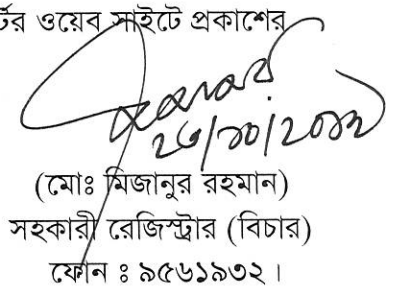 র্টের ওয়েব সাইটে প্রকাশের
(মোঃ মিজানুর রহমান)
সহকারী রেজিস্ট্রার (বিচার)
ফোন ঃ ৯৫৬১৯৩২।